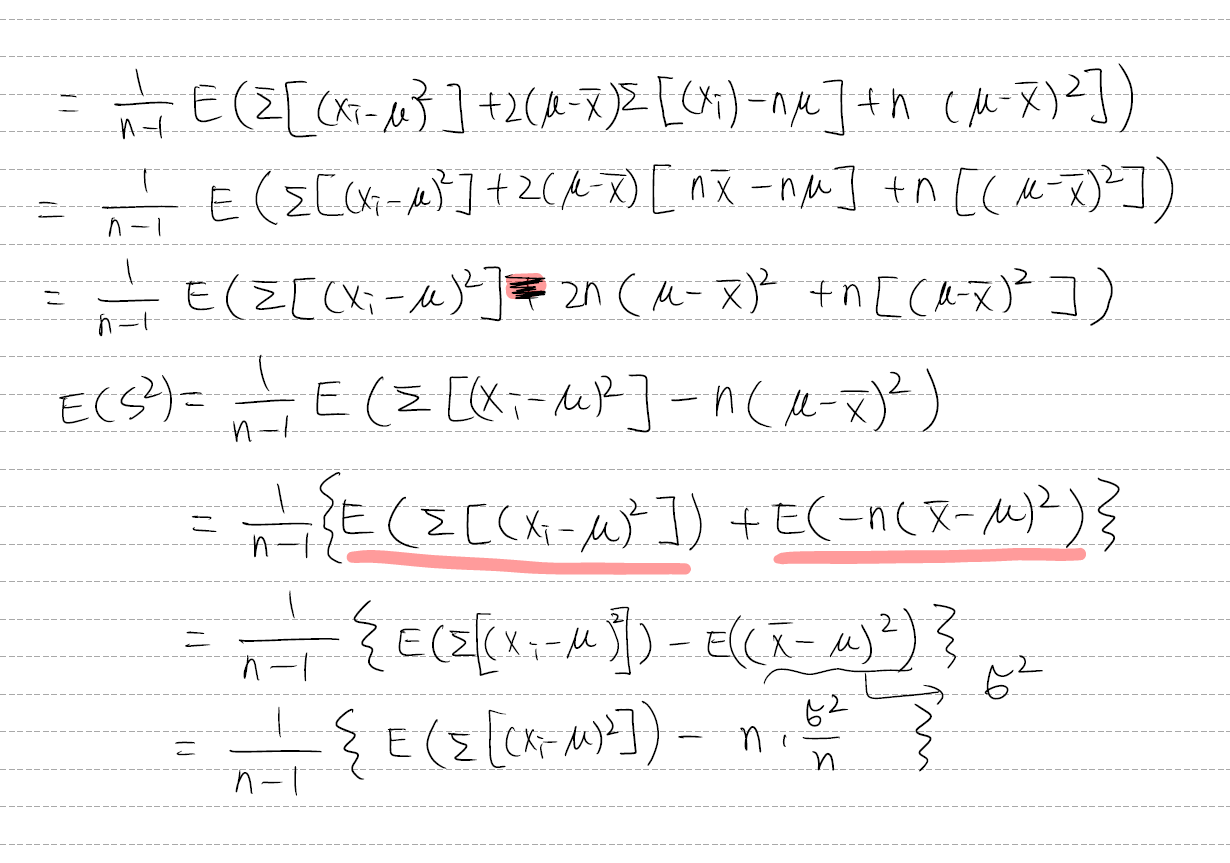 = 1/(n-1) E(Σ[(xᵢ-μ)²]+2(μ-x̄)Σ[(xᵢ)-nμ]+n (μ-x̄)²])
= 1/(n-1) E(Σ[(xᵢ-μ)²]+2(μ-x̄)[nx̄-nμ] +n[(μ-x̄)²])
= 1/(n-1) E(Σ[(xᵢ-μ)²] 2n(μ-x̄)² +n[(μ-x̄)²])
E(S²)= 1/(n-1) E(Σ[(xᵢ-μ)²]-n(μ-x̄)²)
= 1/(n-1) {E(Σ[(xᵢ-μ)²]) + E(-n(x̄-μ)²)}
= 1/(n-1) {E(Σ[(xᵢ-μ)²])-E((x̄-μ)²)}
σ²
= 1/(n-1) {E(Σ[(xᵢ-μ)²]) - n·σ²/n}